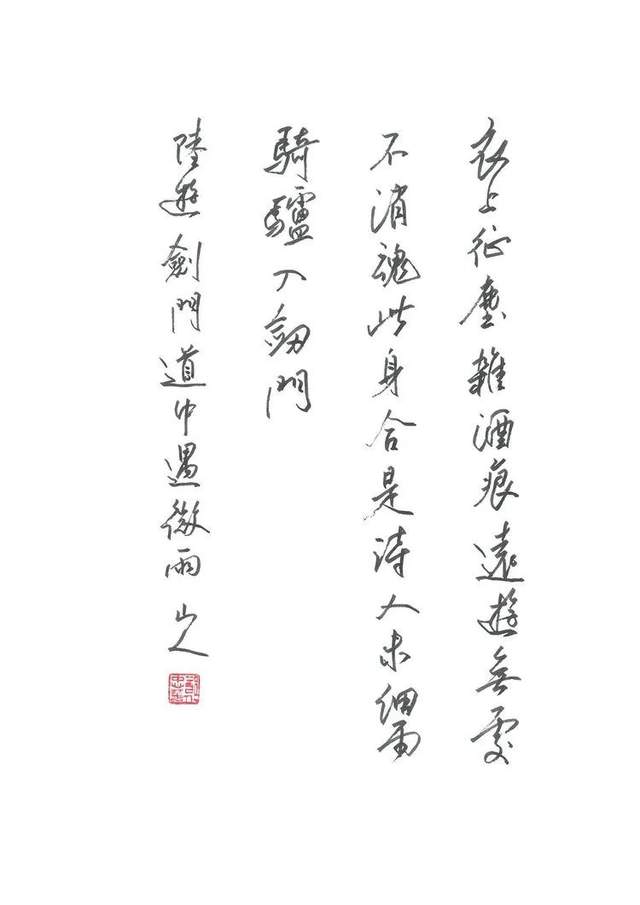 衣上征塵雜酒痕遠遊無處
不消魂此身合是詩人未細雨
騎驢入劒門
陸遊劍門道中遇微雨 山人